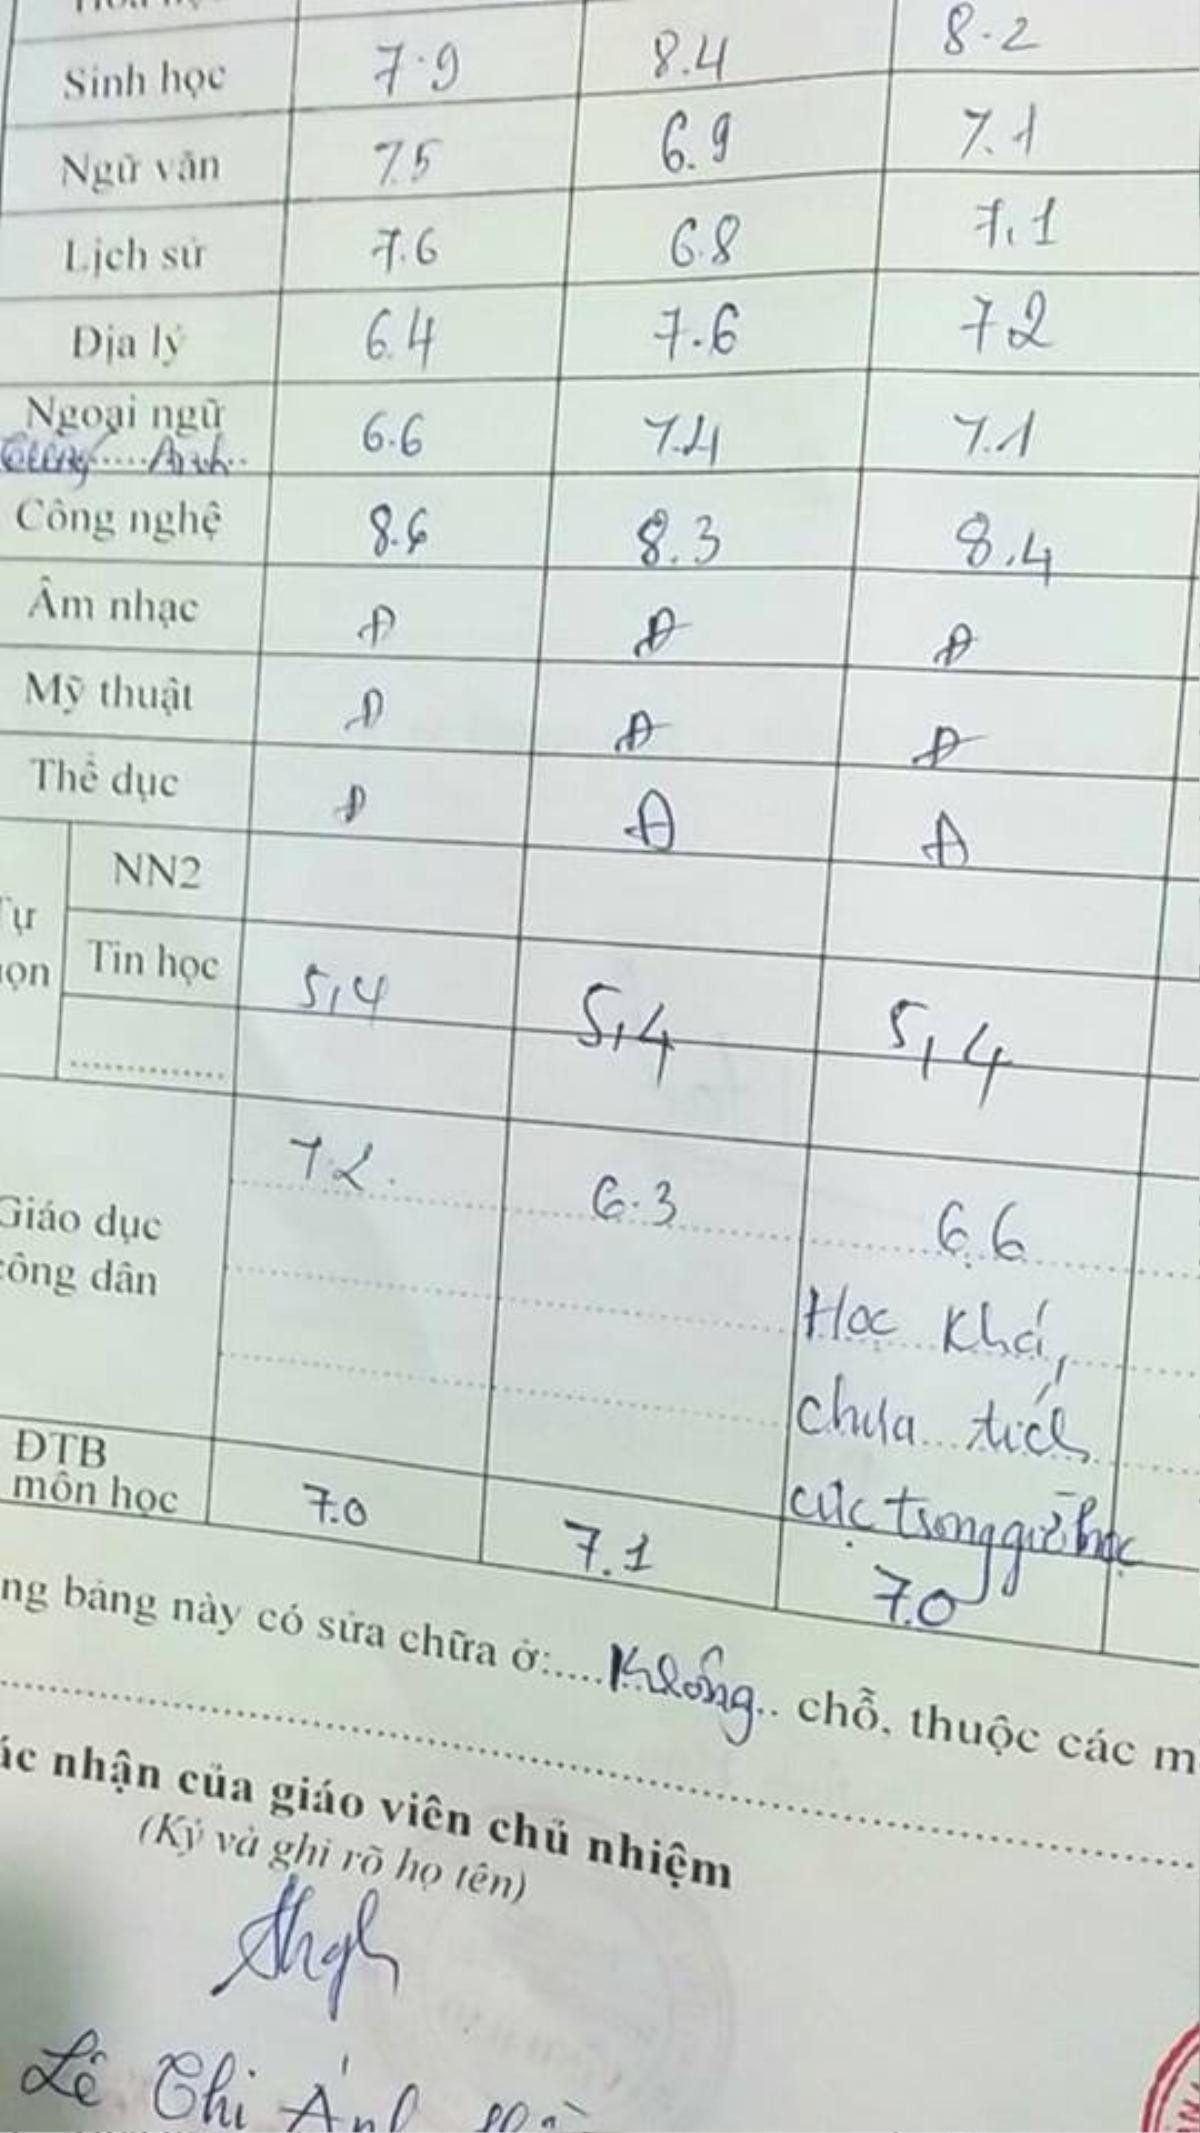 Sinh học 7.9 8.4 8.2
Ngữ văn 7.5 6.9 7.1
Lịch sử 7.6 6.8 7.1
Địa lý 6.4 7.6 7.2
Ngoại ngữ 6.6 7.4 7.1
Tiếng.....Anh..
Công nghệ 8.6 8.3 8.4
Âm nhạc Đ Đ Đ
Mỹ thuật Đ Đ Đ
Thể dục Đ Đ Đ
NN2
Tin học 5,4 5,4 5,4
Giáo dục 7.2 6.3 6.6
công dân
Học khá,
chưa tích
cực trong giờ học
ĐTB
môn học 7.0 7.1 7.0
ng bảng này có sửa chữa ở:....Không.. chỗ, thuộc các m
ác nhận của giáo viên chủ nhiệm
(Ký và ghi rõ họ tên)
Lê Thị Ánh